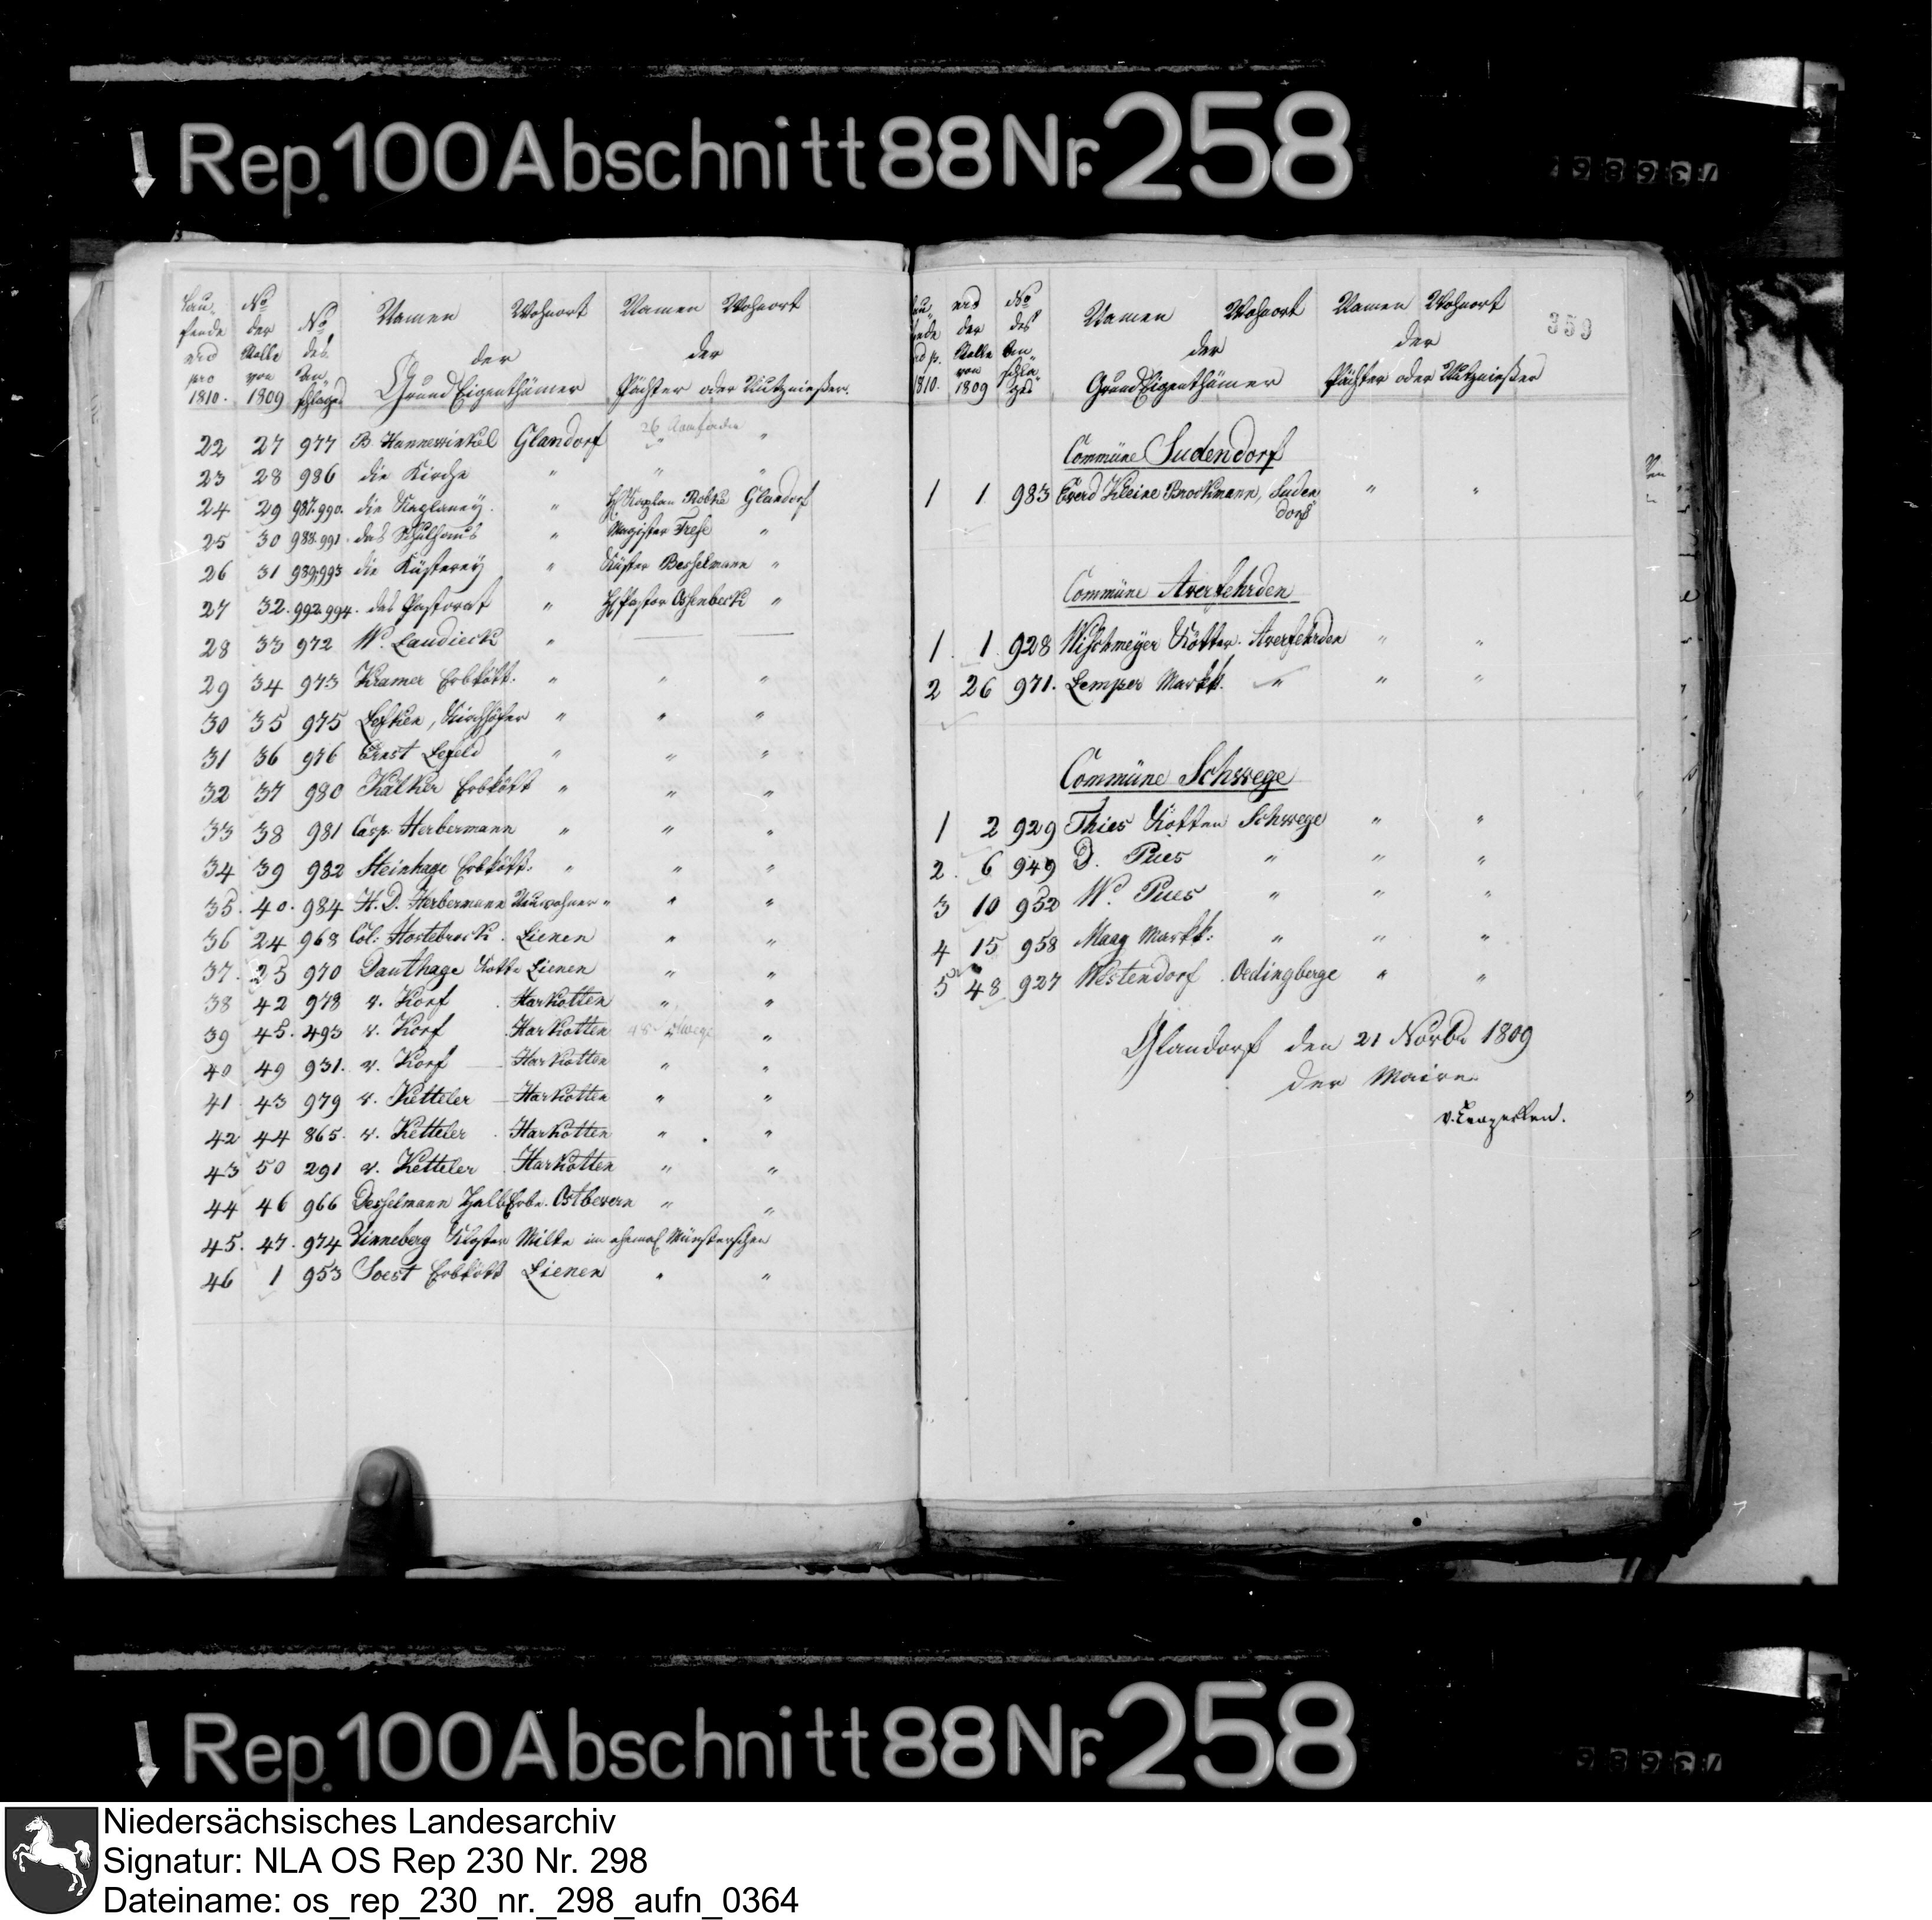 Rep. 100 Abschnitt 88 Nr. 258
353
Laufende No pro 1810. | No der Rolle von 1809 | No des Anschlages | Namen Wohnort der GrundEigenthümer | Namen Wohnort der Pächter oder Nutznießer.
22 27 977 B. Hannewinkel Glandorf " "
23 28 986 die Kirche " " "
24 29 987.990. die Kaplaney. " H Kaplan Robke Glandorf
25 30 988.991. das Schulhaus " Magister Frese "
26 31 989.993 die Küsterey " Küster Besselmann "
27 32. 992.994. das Pastorat " H Pastor Ossenbeck "
28 33 972 W. Laudieck "
29 34 973 Kramer Erbkött. " " "
30 35 975 Lefken, Kirchhöfer " " "
31 36 976 Ernst Lefeld " " "
32 37 980 Kätker Erbkött " " "
33 38 981 Casp. Herbermann " " "
34 39 982 Steinhage Erbkött. " " "
35. 40. 984 H. D. Herbermann Neuwohner " " "
36 24 968 Col: Hostebrock. Lienen " "
37. 25 970 Dauthage Kotte Lienen " "
38 42 978 v. Korf Harkotten " "
39 45. 493 v. Korf Harkotten "
40 49 931. v. Korf Harkotten " "
41 43 979 v. Ketteler Harkotten " "
42 44 865. v. Ketteler Harkotten " "
43 50 291 v. Ketteler Harkotten " "
44 46 966 Desselmann HalbErbe. Ostbevern " "
45. 47. 974 Vinneberg Kloster Milte im ehemal Münsterschen
46 1 953 Soest Erbkött Lienen " "
Laufende No p. 1810. | No der Rolle von 1809 | No des Anschlages | Namen Wohnort der GrundEigenthümer | Namen Wohnort der Pächter oder Nutznießer
Commüne Sudendorf
1 1 983 Everd Kleine Brockmann, Suden " "
dorf
Commüne Averfehrden
1. 1. 928 Wischmeyer Kötter. Averfehrden " "
2 26 971. Lemper Markk. " " "
Commüne Schwege
1 2 929 Thies Kötter Schwege " "
2. 6 949 D. Pues " " "
3 10 952 W. Pues " " "
4 15 958 Maag Markk: " " "
5 48 927 Westendorf. Oedingberge " "
Glandorf den 21 Novbr 1809
der Maire
Rep. 100 Abschnitt 88 Nr. 258
Niedersächsisches Landesarchiv
Signatur: NLA OS Rep 230 Nr. 298
Dateiname: os_rep_230_nr._298_aufn_0364